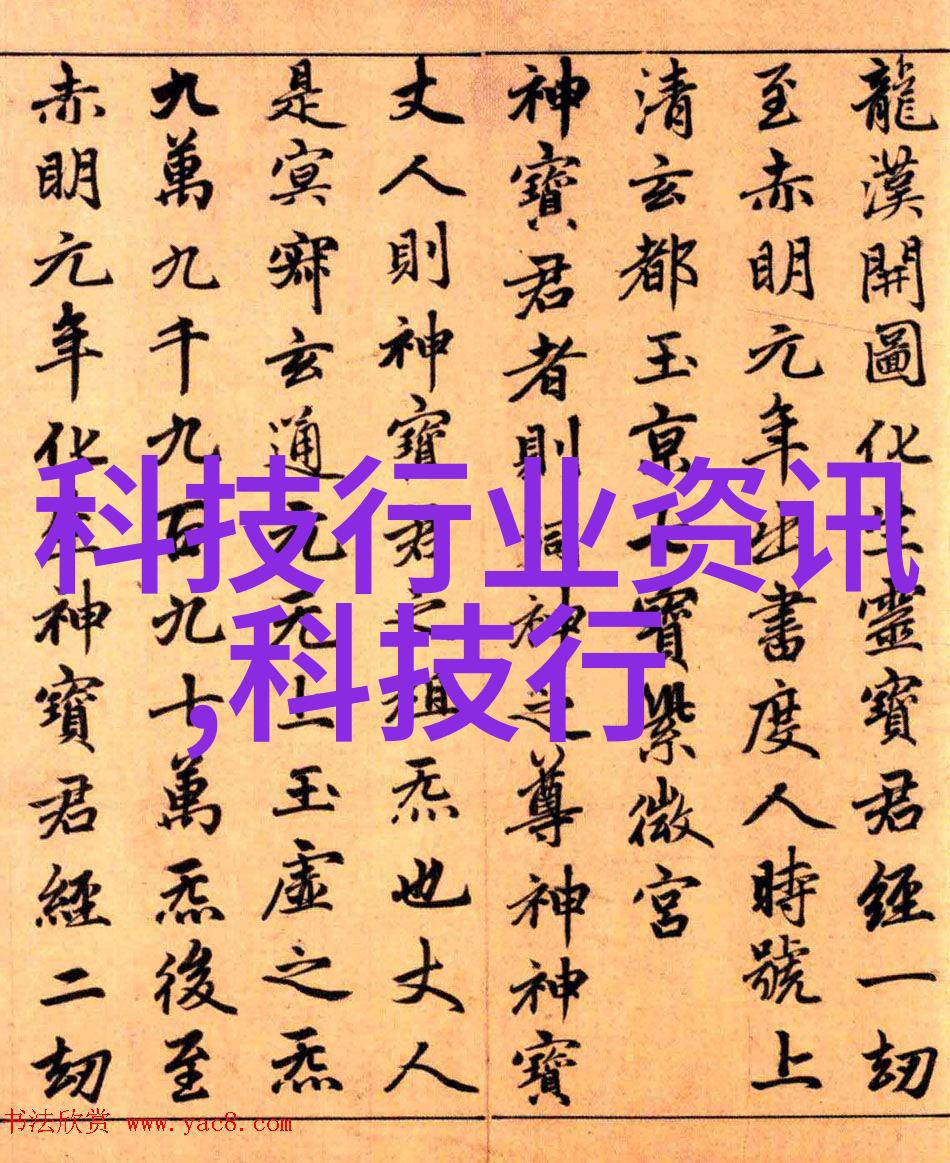 龍漢開圖化生靈寶君經一劫
至赤明元年出書度人時號上
清玄都玉京七寶紫微宮
神寶君者則洞神之尊神神寶
丈人則神寶君之祖炁也丈人
是冥寂玄通元无上玉虛之炁
九萬九千九百九十萬炁後至
赤明元年化生神寶君經二劫
科技行业资讯
,科技行
书法欣赏 www.yac8.com